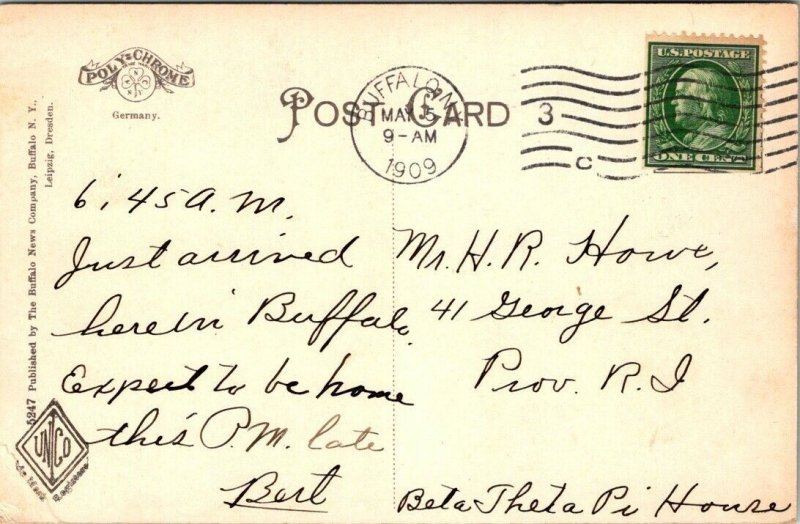 POLY-CHROME
Germany.
5247 Published by The Buffalo News Company, Buffalo N. Y.,
Leipzig, Dresden.
POST CARD
BUFFALO, N.Y.
MAY 5
9-AM
1909
3
C
U.S. POSTAGE
ONE CENT
6:45 A.M.
Just arrived
here in Buffalo.
Expect to be home
this P.M. late
Bert
Mr. H. R. Howe,
41 George St.
Prov. R. I
Beta Theta Pi House
UNCO